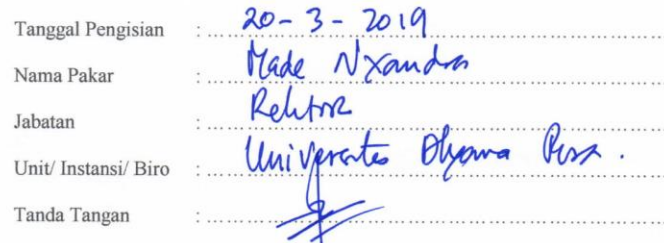 Tanggal Pengisian : 20-3-2019
Nama Pakar : Made Nyandra
Jabatan : Rektor
Unit/ Instansi/ Biro : Universitas Dhyana Pura.
Tanda Tangan :